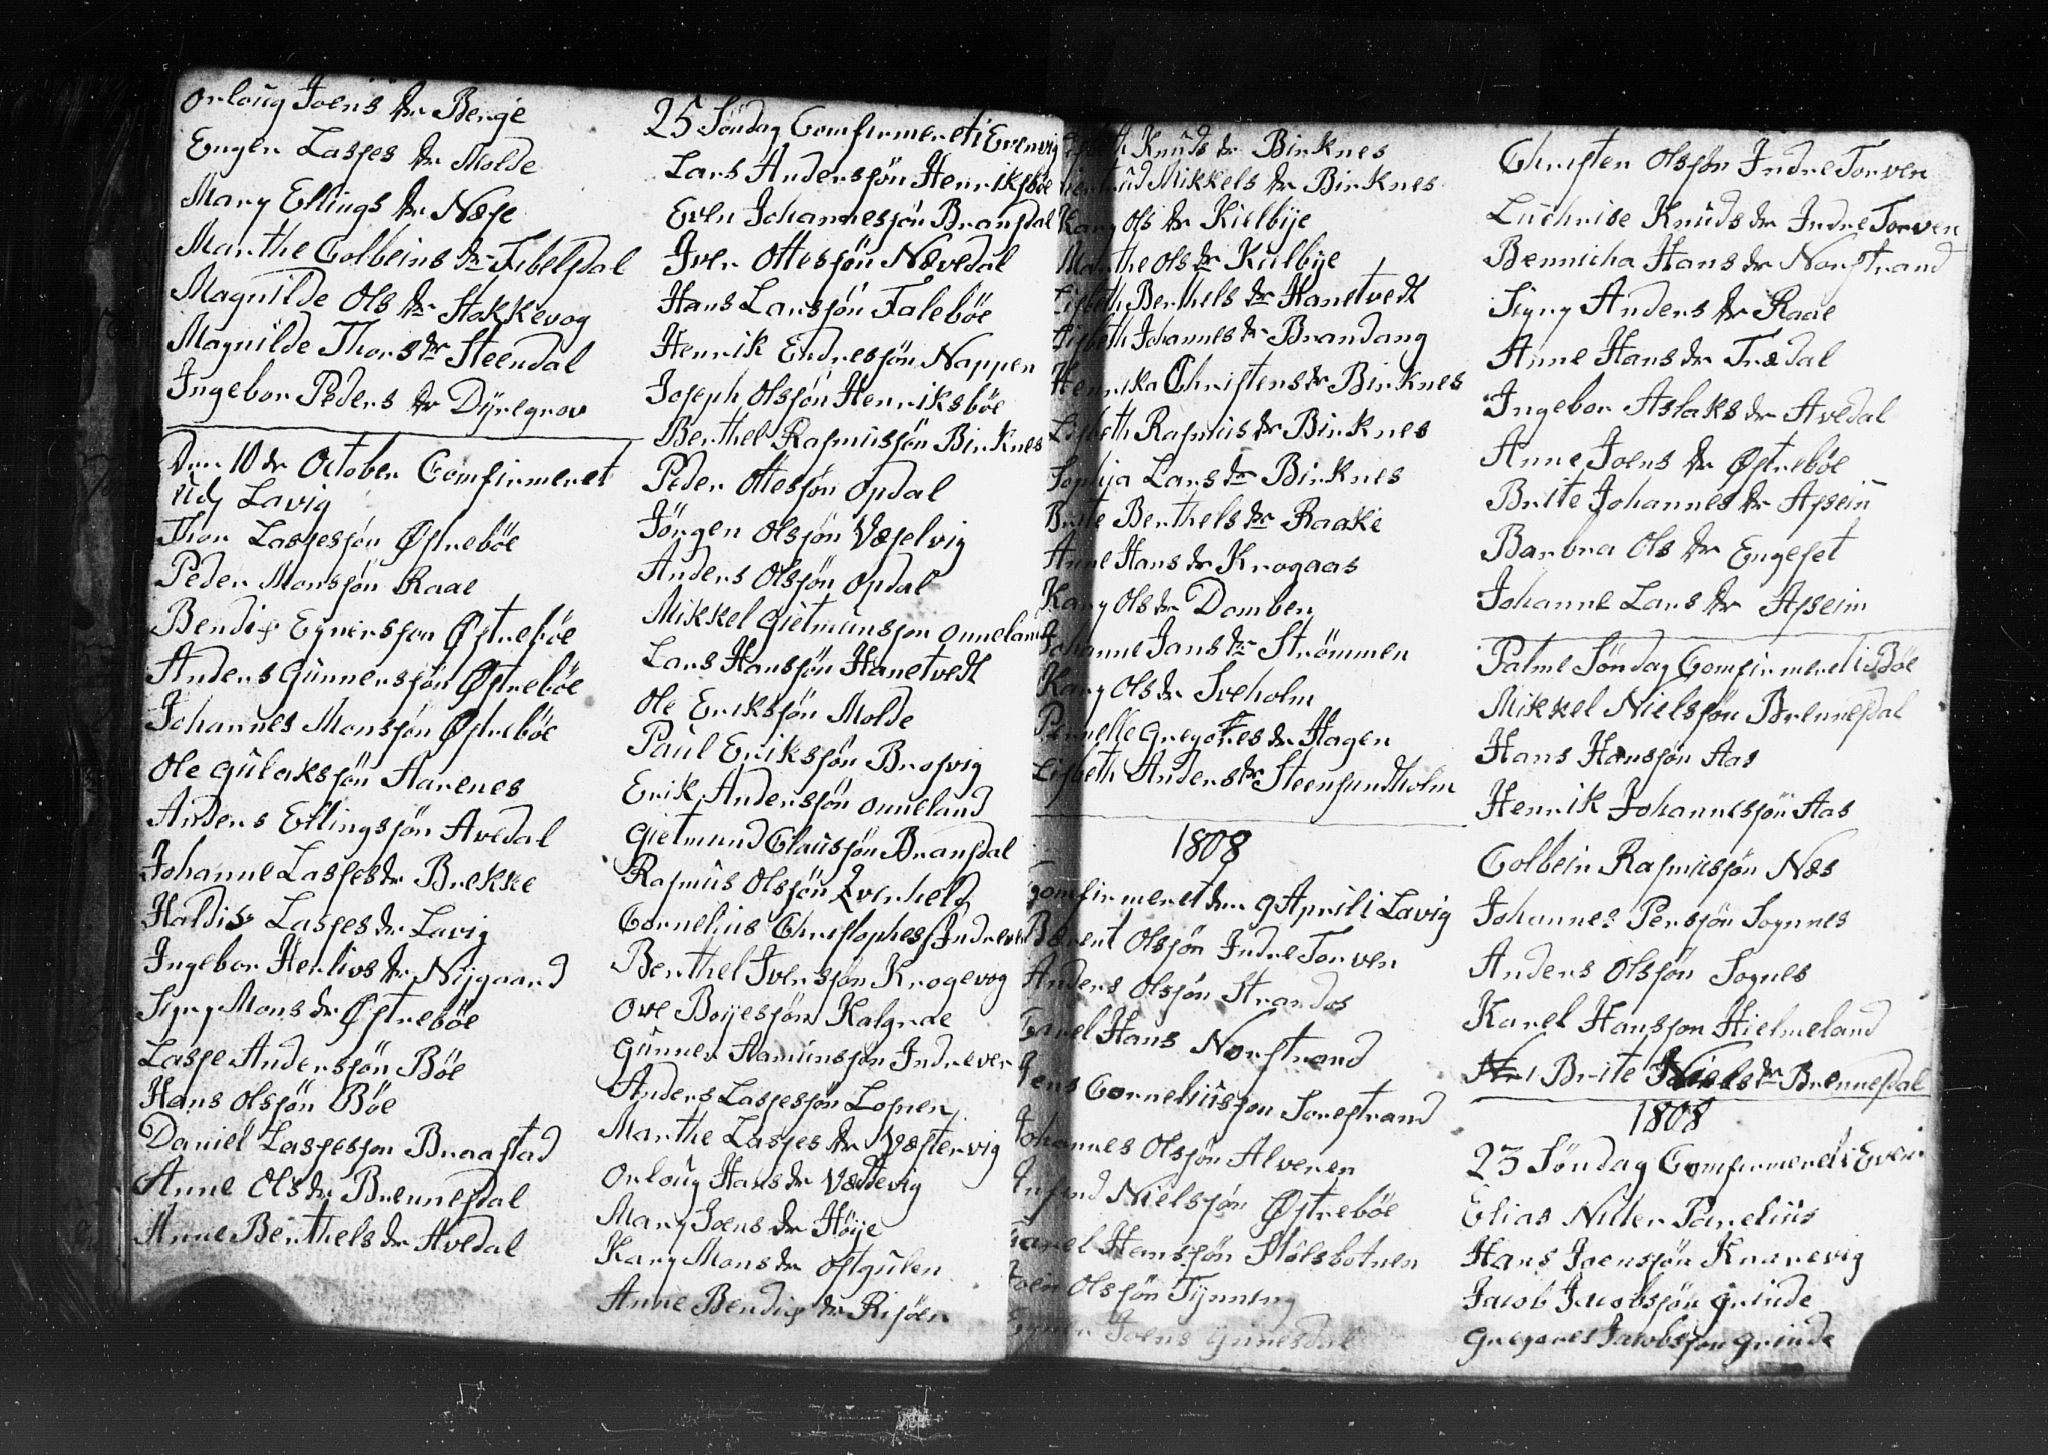 Orloug Joens dr Berge
Enger Lasses dr Molde
Mary Ellings dr Næse
Marthe Colbeins dr Tibelsdal
Magnilde Ols dr Stokkevog
Magnilde Thors dr Steendal
Ingebor Peders dr Dÿregrov
Den 10 dr October Comfirmeret
udj Lavig
Thor Lassesjön Østreböe
Peder Monsjön Raae
Bendix Egnersjon Østrebôe
Anders Gunnersjön Østrebôe
Johannes Monsjön Østrebôe
Ole Gulaksjön Aarenes
Anders Ellingsjön Avedal
Johanne Lasses dr Brekke
Haldis Lasses dr Lavig
Ingebor Herlivs dr Nÿgaard
Signy Mons dr Østrebôe
Lasse Andersjön Bôe
Hans Olsjön Bôe
Daniel Lassesjon Braastad
Anne Ols dr Brennesdal
Anne Berthels dr Avedal
25 Söndag Comfirmeret i Evenvig
Lars Andersjön Henriksbôe
Even Johannesjön Bransdal
Iver Ottesjön Nævedal
Hans Larsjön Falebôe
Henrik Endresjön Nappen
Joseph Olsjön Henriksbôe
Berthel Rasmusjön Birknes
Peder Ottesjön Opdal
Jörgen Olsjön Væselvig
Anders Olsjön Opdal
Mikkel Gietmunsjon Onneland
Lars Hansjön Hanetvedt
Ole Eriksjön Molde
Paul Eriksjön Brosvig
Erik Andersjön Onneland
Gietmund Clausjön Bransdal
Rasmus Olsjön Qvenheld
Cornelius Christophesj Indrever
Berthel Iversjön Krogevog
Ove Boÿesjön Kalgrae
Gunner Aamunsjon Indrever
Anders Lassesjon Losnen
Marthe Lasses dr Væstervig
Orloug Hans dr Vædtevig
Mary Joens dr Höÿe
Kary Mons dr Ostgulen
Anne Bendix dr Risöen
Knuds dr Birknes
Mikkels dr Birknes
Kary Ols dr Kielbÿe
Marthe Ols dr Kielbÿe
Lisbeth Berthels dr Hanetvedt
Lisbeth Johannes dr Brandang
Henrika Christens dr Birknes
Lisbeth Rasmus dr Birknes
Sophia Lars dr Birknes
Brite Berthels dr Raake
Anne Hans dr Krogaas
Kary Ols dr Domben
Johanne Jans dr Strömmen
Kary Ols dr Sveholm
Pernelle Gregories dr Hagen
Lisbeth Anders dr Steensundholm
1808
Comfirmeret den 9 April i Lavig
Bærent Olsjön Indre Torven
Anders Olsjön Strandos
Carel Hans Norstrand
Jens Corneliusjon Sorestrand
Johannes Olsjön Alveren
Anfind Nielsjón Østrebôe
Carel Hemsjön Stølsbotnen
Joen Olsjön Tÿnning
Joens Ginnesdal
Christen Olsjøn Indre Torven
Luchrise Knuds dr Indre Torven
Bennicha Hans dr Norstrand
Signy Anders dr Raae
Anne Hans dr Trædal
Ingebor Aslaks dr Avedal
Anne Joens dr Østrebôe
Brite Johannes dr Asseim
Barbra Ols dr Engeset
Johanne Lars dr Asseim
Palme Söndag Comfirmeret i Bôe
Mikkel Nielsjön Brennesdal
Hans Hansjøn Aas
Henrik Johannesjön Aas
Colbein Rasmusjön Næs
Johannes Persjön Sognnes
Anders Olsjön Sognes
Karel Hansjon Hielmeland
Brite Niels dr Brennesdal
1808
23 Söndag Comfirmeret i Even
Elias Nitter Parelius
Hans Joensjön Knarevig
Jacob Jacobsjön Grinde
Gregores Jacobsjon Grinde